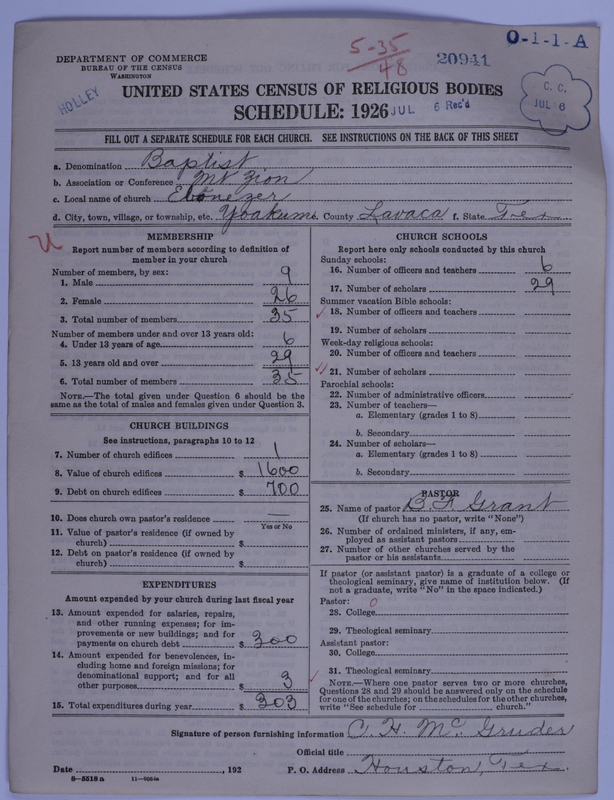 O-1-1-A
5-35
48
20941
DEPARTMENT OF COMMERCE
BUREAU OF THE CENSUS
WASHINGTON
HOLLEY
UNITED STATES CENSUS OF RELIGIOUS BODIES
SCHEDULE: 1926
JUL 6 Rec'd
C. C.
JUL 6
FILL OUT A SEPARATE SCHEDULE FOR EACH CHURCH. SEE INSTRUCTIONS ON THE BACK OF THIS SHEET
a. Denomination Baptist
b. Association or Conference Mt Zion
c. Local name of church Ebenezer
d. City, town, village, or township, etc. Yoakum e. County Lavaca f. State Tex
MEMBERSHIP
Report number of members according to definition of
member in your church
Number of members, by sex:
1. Male 9
2. Female 26
3. Total number of members 35
Number of members under and over 13 years old:
4. Under 13 years of age 6
5. 13 years old and over 29
6. Total number of members 35
NOTE.—The total given under Question 6 should be
same as the total of males and females given under Question 3.
CHURCH BUILDINGS
See instructions, paragraphs 10 to 12
7. Number of church edifices 1
8. Value of church edifices $ 1600
9. Debt on church edifices $ 700
10. Does church own pastor's residence —
Yes or No
11. Value of pastor's residence (if owned by
church) $
12. Debt on pastor's residence (if owned by
church) $
EXPENDITURES
Amount expended by your church during last fiscal year
13. Amount expended for salaries, repairs,
and other running expenses; for im-
provements or new buildings; and for
payments on church debt $ 300
14. Amount expended for benevolences, in-
cluding home and foreign missions; for
denominational support; and for all
other purposes $ 3
15. Total expenditures during year $ 303
CHURCH SCHOOLS
Report here only schools conducted by this church
Sunday schools:
16. Number of officers and teachers 6
17. Number of scholars 29
Summer vacation Bible schools:
18. Number of officers and teachers
19. Number of scholars
Week-day religious schools:
20. Number of officers and teachers
21. Number of scholars
Parochial schools:
22. Number of administrative officers
23. Number of teachers—
a. Elementary (grades 1 to 8)
b. Secondary
24. Number of scholars—
a. Elementary (grades 1 to 8)
b. Secondary
PASTOR
25. Name of pastor B. F. Grant
(If church has no pastor, write "None")
26. Number of ordained ministers, if any, em-
ployed as assistant pastors
27. Number of other churches served by the
pastor or his assistants
If pastor (or assistant pastor) is a graduate of a college or
theological seminary, give name of institution below. (If
not a graduate, write "No" in the space indicated.)
Pastor: 0
28. College
29. Theological seminary
Assistant pastor:
30. College
31. Theological seminary
NOTE.—Where one pastor serves two or more churches,
Questions 28 and 29 should be answered only on the schedule
for one of the churches; on the schedules for the other churches,
write "See schedule for church."
Signature of person furnishing information C. H. McGruder
Official title
Date , 192 P. O. Address Houston, Tex
8-5518 a 11-9084a